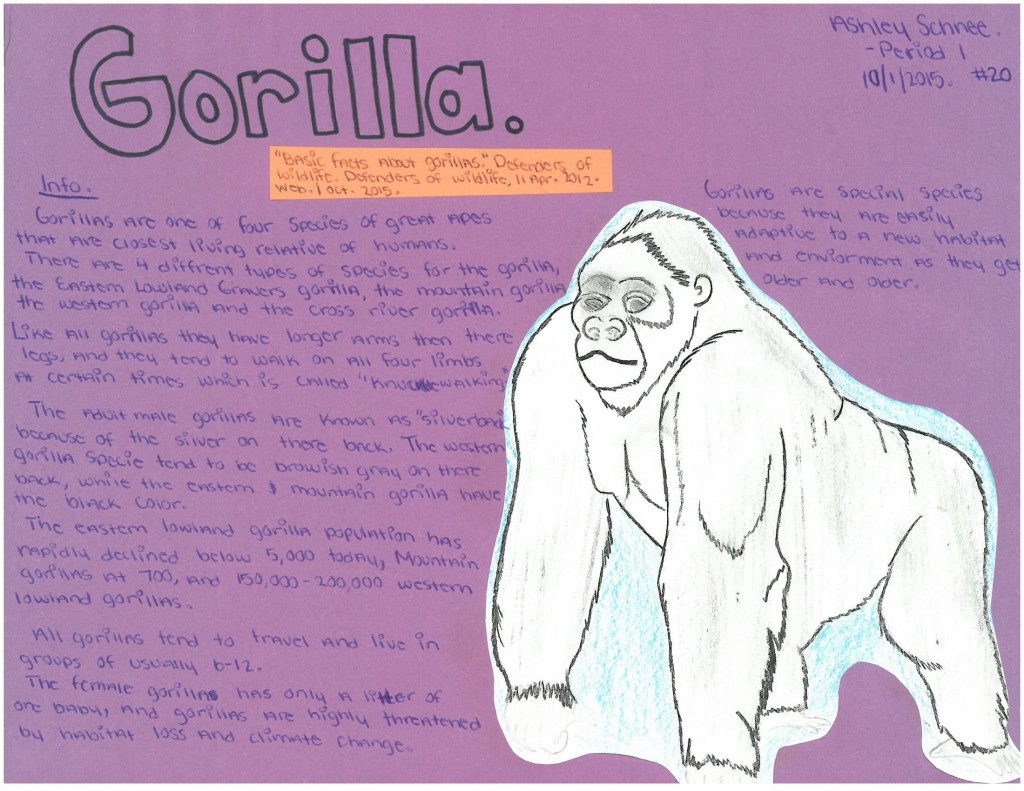 Gorilla.
Ashley Schnee.
-Period 1
10/1/2015. #20
"Basic facts about gorillas." Defenders of
wildlife. Defenders of wildlife, 11 Apr. 2012.
Web. 1 Oct. 2015.
Info.
Gorillas are one of four species of great apes
that are closest living relative of humans.
There are 4 diffrent types of species for the gorilla,
the Eastern Lowland Gravers gorilla, the mountain gorilla
the western gorilla and the cross river gorilla.
Like all gorillas they have longer arms then there
legs, and they tend to walk on all four limbs
at certain times which is called "knucklewalking"
The adult male gorillas are known as "silverback
because of the silver on there back. The western
gorilla specie tend to be browish gray on there
back, while the eastern & mountain gorilla have
the black color.
The eastern lowland gorilla population has
rapidly declined below 5,000 today, Mountain
gorillas at 700, and 150,000-200,000 western
lowland gorillas.
All gorillas tend to travel and live in
groups of usually 6-12.
The female gorillas has only a litter of
one baby, and gorillas are highly threatened
by habitat loss and climate change.
Gorillas are special species
because they are easily
adaptive to a new habitat
and enviorment as they get
older and older.